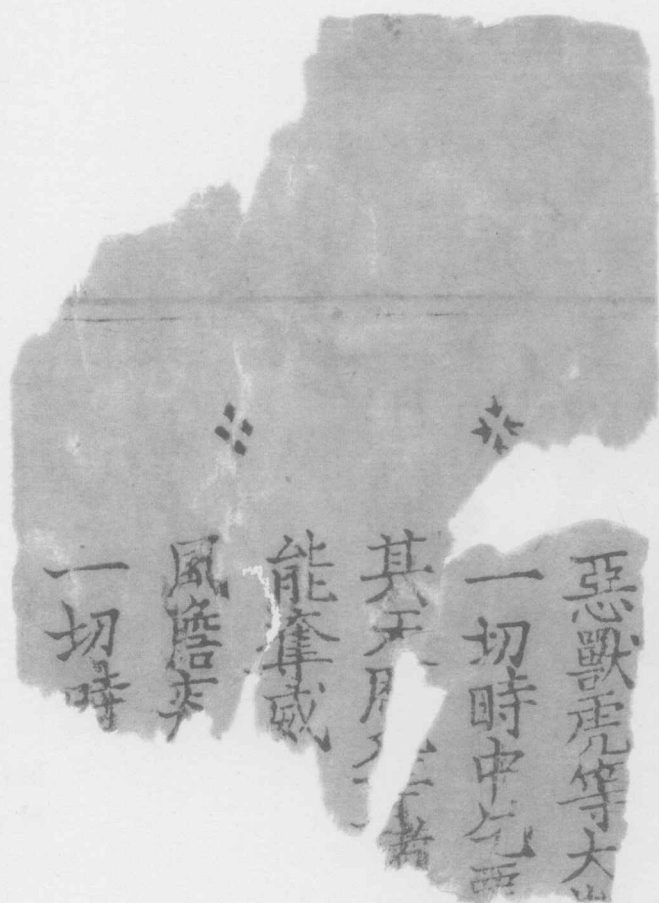 惡獸虎等大
一切時中乞
其天者
能奪威
風
一切時